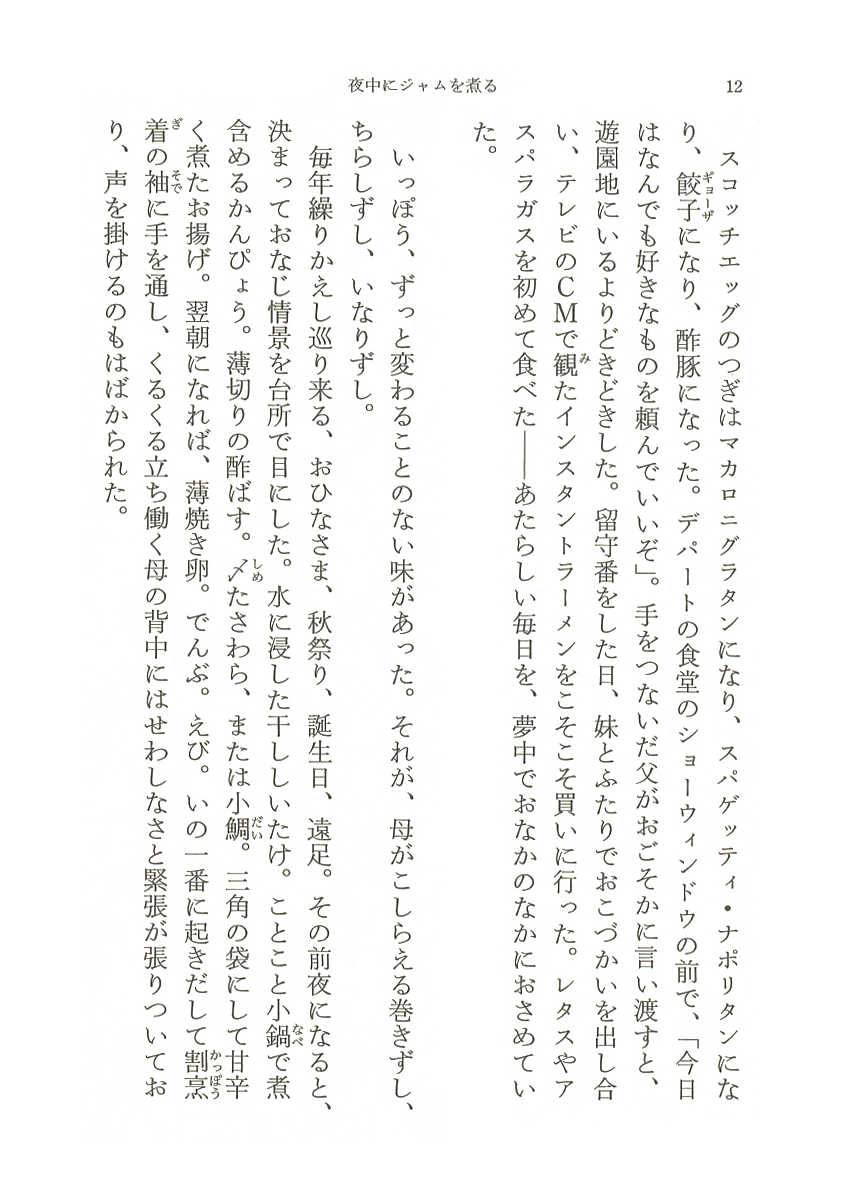 夜中にジャムを煮る
12
スコッチエッグのつぎはマカロニグラタンになり、スパゲッティ・ナポリタンにな
り、餃子になり、酢豚になった。デパートの食堂のショーウィンドウの前で、「今日
はなんでも好きなものを頼んでいいぞ」。手をつないだ父がおごそかに言い渡すと、
遊園地にいるよりどきどきした。留守番をした日、妹とふたりでおこづかいを出し合
い、テレビのCMで観たインスタントラーメンをこそこそ買いに行った。レタスやア
スパラガスを初めて食べた——あたらしい毎日を、夢中でおなかのなかにおさめてい
た。
いっぽう、ずっと変わることのない味があった。それが、母がこしらえる巻きずし、
ちらしずし、いなりずし。
毎年繰りかえし巡り来る、おひなさま、秋祭り、誕生日、遠足。その前夜になると、
決まっておなじ情景を台所で目にした。水に浸した干ししいたけ。ことこと小鍋で煮
含めるかんぴょう。薄切りの酢ばす。〆たさわら、または小鯛。三角の袋にして甘辛
く煮たお揚げ。翌朝になれば、薄焼き卵。でんぶ。えび。いの一番に起きだして割烹
着の袖に手を通し、くるくる立ち働く母の背中にはせわしなさと緊張が張りついてお
り、声を掛けるのもはばかられた。